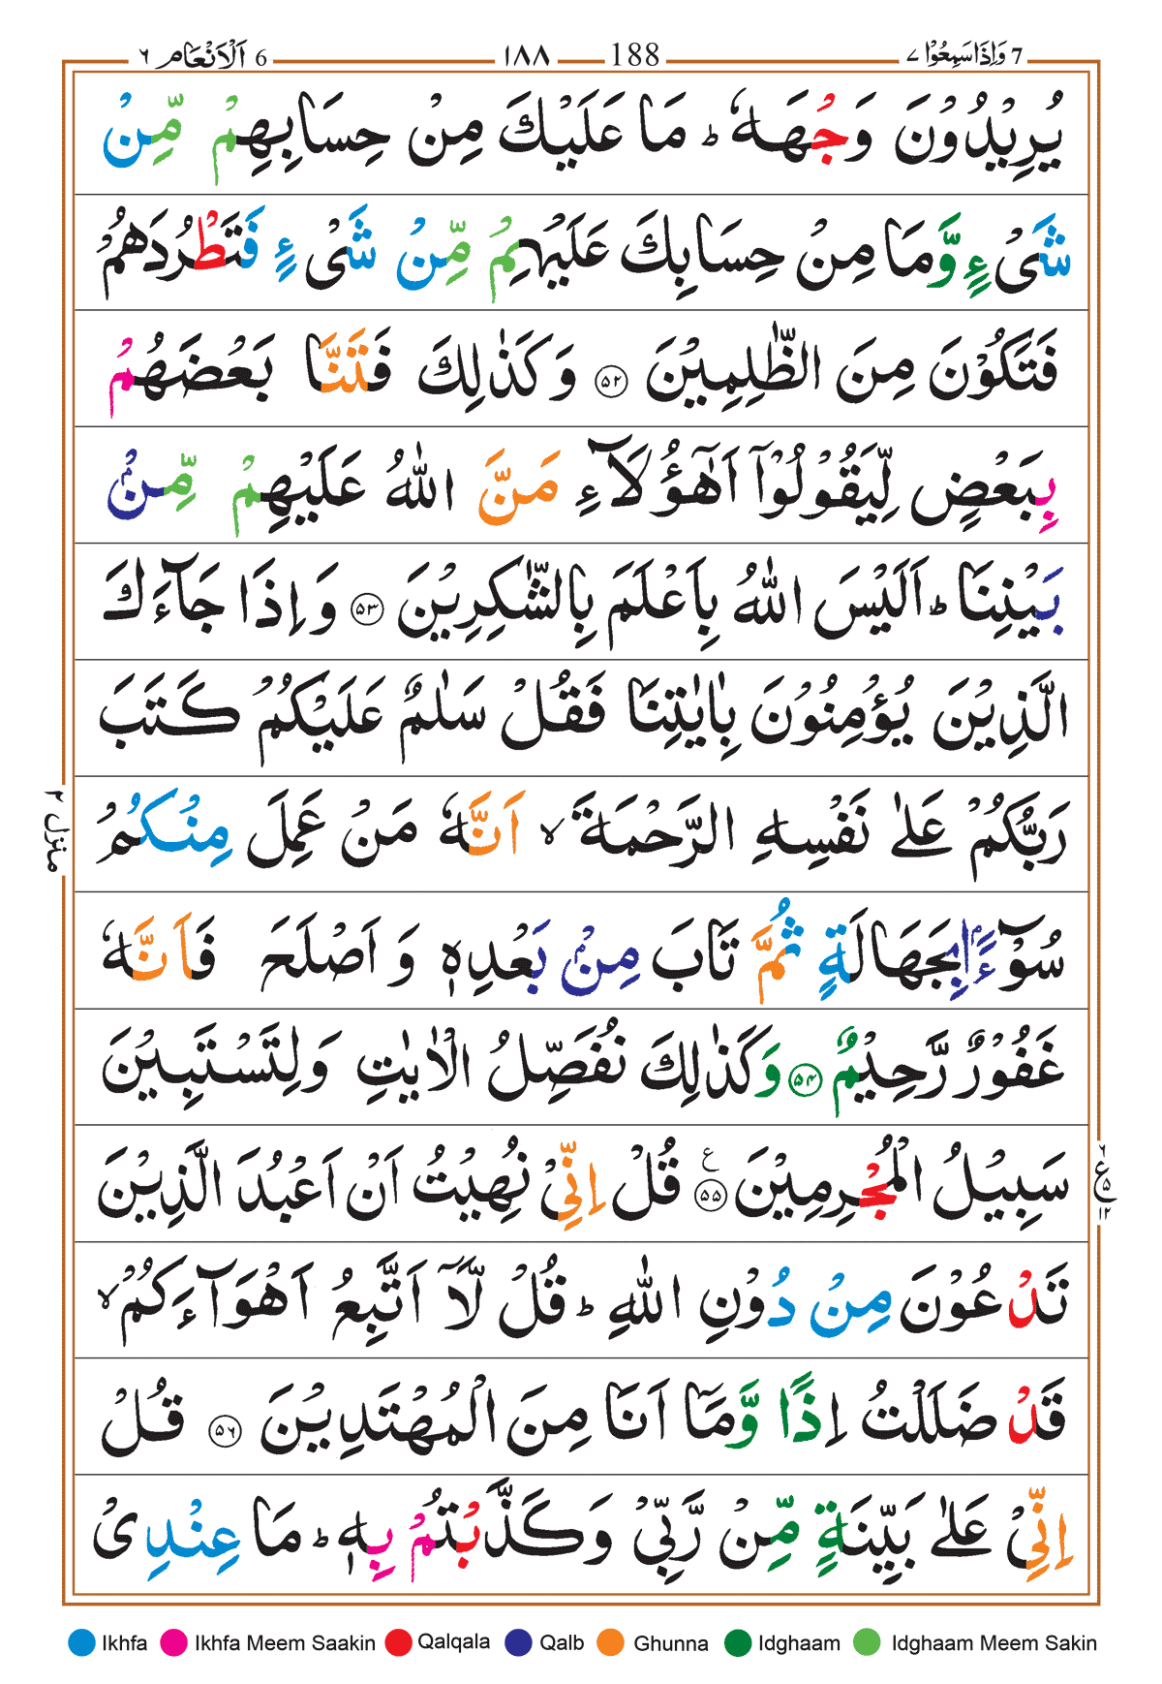 6 اَلْاَنْعَام ٦ ١٨٨ 188 7 وَاِذَاسَمِعُوْا ٧
يُرِيْدُوْنَ وَجْهَهٗ ؕ مَا عَلَيْكَ مِنْ حِسَابِهِمْ مِّنْ
شَىْءٍ وَّمَا مِنْ حِسَابِكَ عَلَيْهِمْ مِّنْ شَىْءٍ فَتَطْرُدَهُمْ
فَتَكُوْنَ مِنَ الظّٰلِمِيْنَ ﴿۵۲﴾ وَكَذٰلِكَ فَتَنَّا بَعْضَهُمْ
بِبَعْضٍ لِّيَقُوْلُوْۤا اَهٰۤؤُلَآءِ مَنَّ اللّٰهُ عَلَيْهِمْ مِّنْۢ
بَيْنِنَا ؕ اَلَيْسَ اللّٰهُ بِاَعْلَمَ بِالشّٰكِرِيْنَ ﴿۵۳﴾ وَاِذَا جَآءَكَ
الَّذِيْنَ يُؤْمِنُوْنَ بِاٰيٰتِنَا فَقُلْ سَلٰمٌ عَلَيْكُمْ كَتَبَ
رَبُّكُمْ عَلٰى نَفْسِهِ الرَّحْمَةَ ۙ اَنَّهٗ مَنْ عَمِلَ مِنْكُمْ
سُوْٓءًۢابِجَهَالَةٍ ثُمَّ تَابَ مِنْۢ بَعْدِهٖ وَ اَصْلَحَ فَاَنَّهٗ
غَفُوْرٌ رَّحِيْمٌ ﴿۵۴﴾ وَكَذٰلِكَ نُفَصِّلُ الْاٰيٰتِ وَلِتَسْتَبِيْنَ
سَبِيْلُ الْمُجْرِمِيْنَ ﴿۵۵﴾ ع قُلْ اِنِّىْ نُهِيْتُ اَنْ اَعْبُدَ الَّذِيْنَ
تَدْعُوْنَ مِنْ دُوْنِ اللّٰهِ ؕ قُلْ لَّاۤ اَتَّبِعُ اَهْوَآءَكُمْ ۙ
قَدْ ضَلَلْتُ اِذًا وَّمَاۤ اَنَا مِنَ الْمُهْتَدِيْنَ ﴿۵۶﴾ قُلْ
اِنِّىْ عَلٰى بَيِّنَةٍ مِّنْ رَّبِّىْ وَكَذَّبْتُمْ بِهٖ ؕ مَا عِنْدِىْ
منزل ٢
ع ۵ ١٢
Ikhfa Ikhfa Meem Saakin Qalqala Qalb Ghunna Idghaam Idghaam Meem Sakin